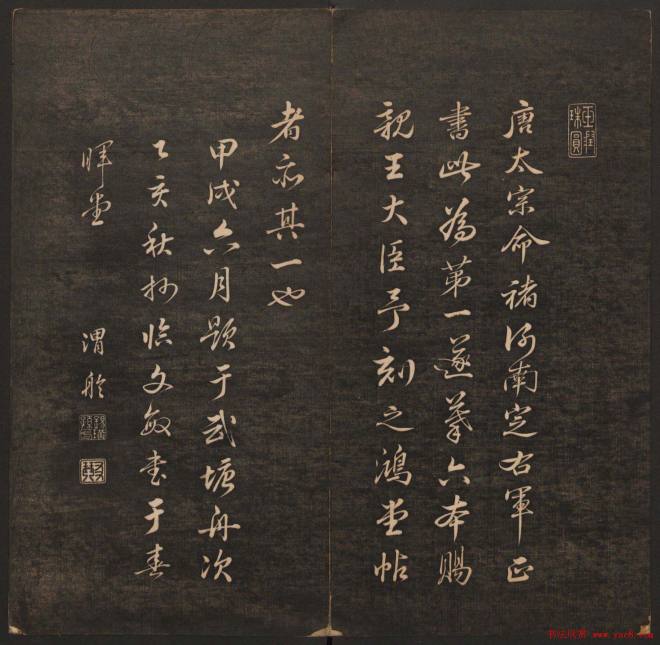 唐太宗命褚河南定右軍正
書此為第一遂摹六本賜
親王大臣予刻之鴻堂帖
者亦其一也
甲戌六月題于武塘舟次
乙亥秋抄臨文敏書于春
暉堂
渭舲
书法欣赏 www.yac8.com